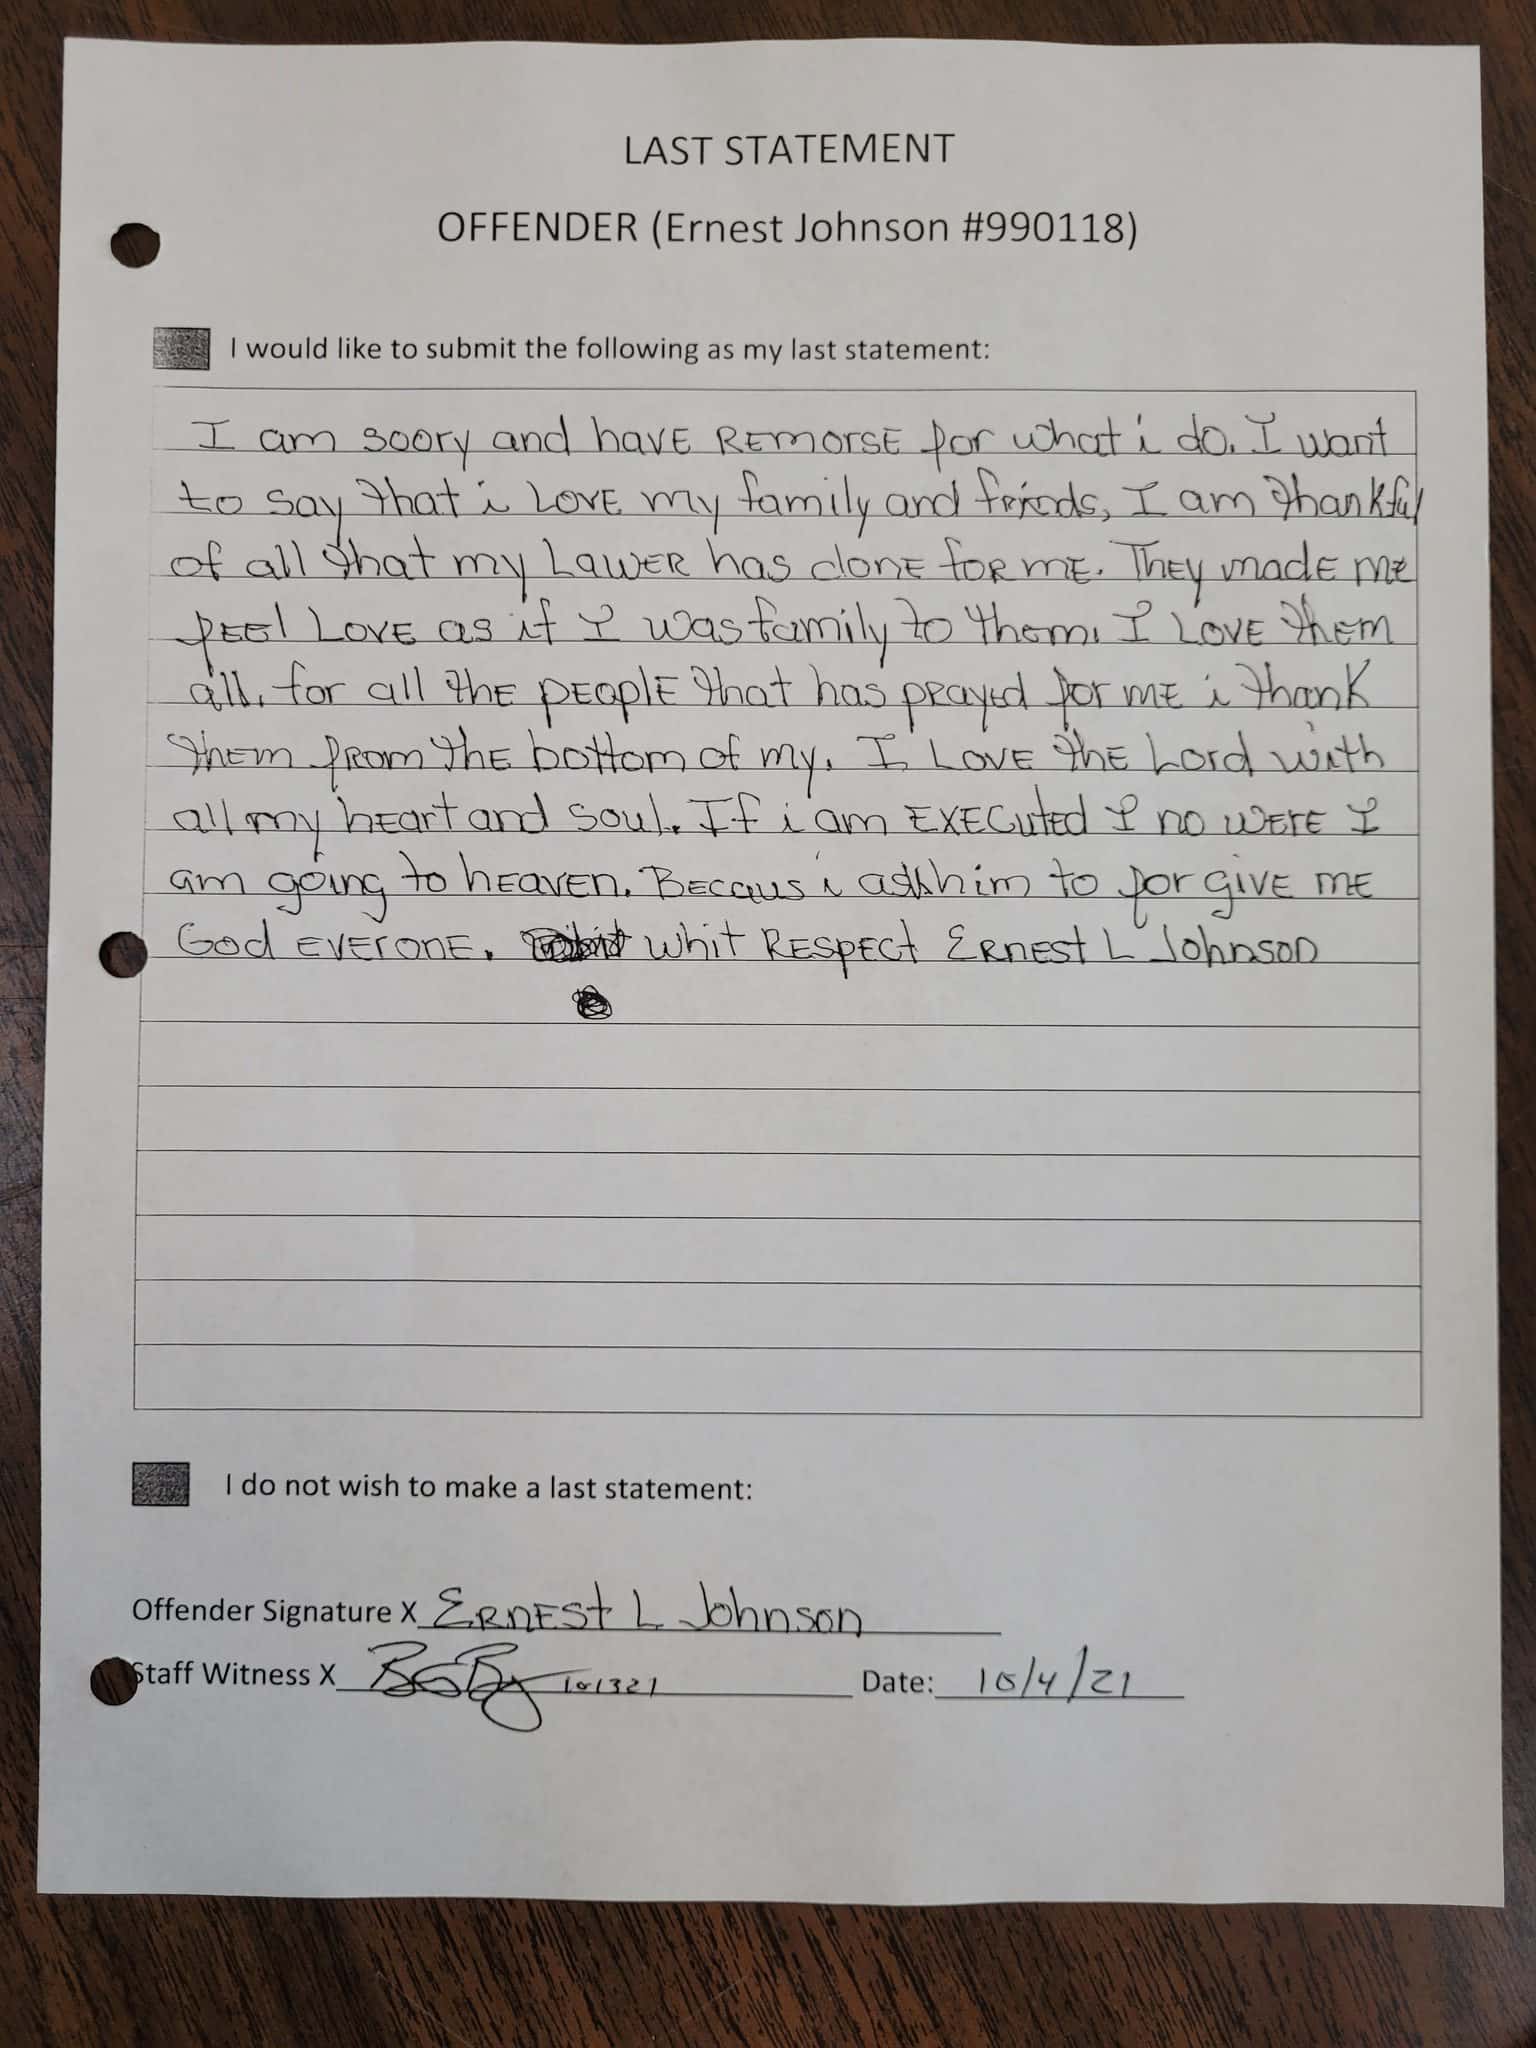 LAST STATEMENT
OFFENDER (Ernest Johnson #990118)
I would like to submit the following as my last statement:
I am soory and have REMORSE for what i do. I want
to say that i LOVE my family and friends, I am thankful
of all that my LawER has donE foR mE. ThEy madE mE
feel LOVE as if I was family to them. I LOVE them
all. for all thE pEoplE that has pRayed for mE i thank
them fRom thE bottom of my. I LOVE thE Lord with
all my hEart and soul. If i am EXECuted I no wERE I
am going to hEavEn. BEcaus i ask him to for givE mE
God EVERONE. whit RESPECt ERNESt L Johnson
I do not wish to make a last statement:
Offender Signature X ERNESt L Johnson
Staff Witness X 101321 Date: 10/4/21